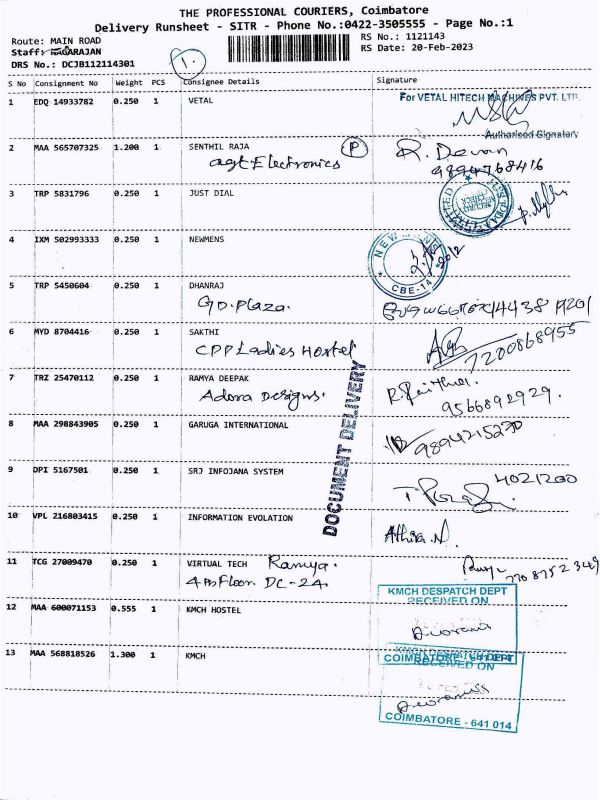 THE PROFESSIONAL COURIERS, Coimbatore
Delivery Runsheet - SITR - Phone No.:0422-3505555 - Page No.:1
Route: MAIN ROAD
RS No.: 1121143
Staff: NAGARAJAN
RS Date: 20-Feb-2023
DRS No.: DCJB112114301
1.
S No Consignment No Weight PCS Consignee Details Signature
1 EDQ 14933782 0.250 1 VETAL
For VETAL HITECH MACHINES PVT. LTD.
Authorised Signatory
2 MAA 565707325 1.200 1 SENTHIL RAJA P R. Devan
agt Electronics 9894768416
3 TRP 5831796 0.250 1 JUST DIAL
4 IXM 502993333 0.250 1 NEWMENS
NEW
CBE-14
5 TRP 5450604 0.250 1 DHANRAJ
GD. Plaza.
6 MYD 8704416 0.250 1 SAKTHI
CPP Ladies Hostel 7200868955
7 TRZ 25470112 0.250 1 RAMYA DEEPAK
Adora Designs. 9566892929.
8 MAA 298843905 0.250 1 GARUGA INTERNATIONAL 9894215230
DOCUMENT DELIVERY
9 DPI 5167501 0.250 1 SRJ INFOJANA SYSTEM 4021200
10 VPL 216803415 0.250 1 INFORMATION EVOLATION Athira.N.
11 TCG 27009470 0.250 1 VIRTUAL TECH Ramya.
4th Floor. DC-24
KMCH DESPATCH DEPT
RECEIVED ON
12 MAA 600071153 0.555 1 KMCH HOSTEL
COIMBATORE - 641 014
13 MAA 568818526 1.300 1 KMCH
KMCH DESPATCH DEPT
RECEIVED ON
COIMBATORE - 641 014